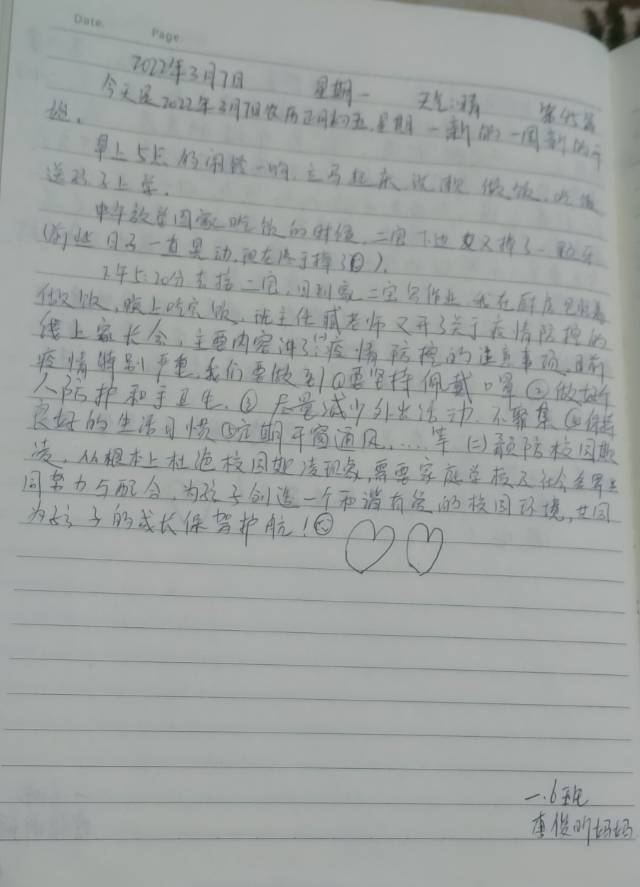 Date.    Page
2022年3月7日 星期一 天气:晴
今天是2022年3月7日农历正月初五,星期一新的一周新的开
始。
早上5点 的闹铃一响,立马起床 洗漱 做饭,吃饭
送孩子上学。
中午放学回家吃饭的时候,二宝下边又掉了一颗牙
(前些日子一直晃动,现在终于掉了)。
下午5:20分去接二宝,回到家二宝写作业,我在厨房
做饭,晚上吃完饭,班主任 老师又开了关于疫情防控的
线上家长会,主要内容讲了(一)疫情防控的注意事项,目前
疫情特别严重,我们要做到①要坚持佩戴口罩②做好个
人防护和手卫生,③尽量减少外出活动,不聚集④保持
良好的生活习惯⑤定期开窗通风……等(二)预防校园欺
凌,从根本上杜绝校园欺凌现象,需要家庭学校及社会各界共
同努力与配合,为孩子创造一个和谐有爱的校园环境,共同
为孩子的成长保驾护航!
一.6班
李俊 妈妈